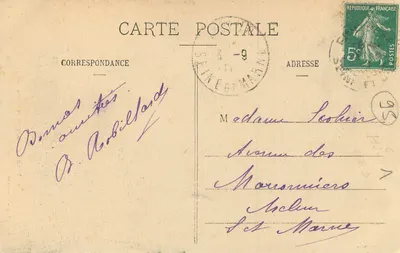 CARTE POSTALE
RÉPUBLIQUE FRANÇAISE
5c
POSTES
SEINE-ET-MARNE
-9
CORRESPONDANCE
ADRESSE
Bonnes
amitiés
B. Robillard
95
Madame
Avenue des
Marronniers
Melun
S et Marne